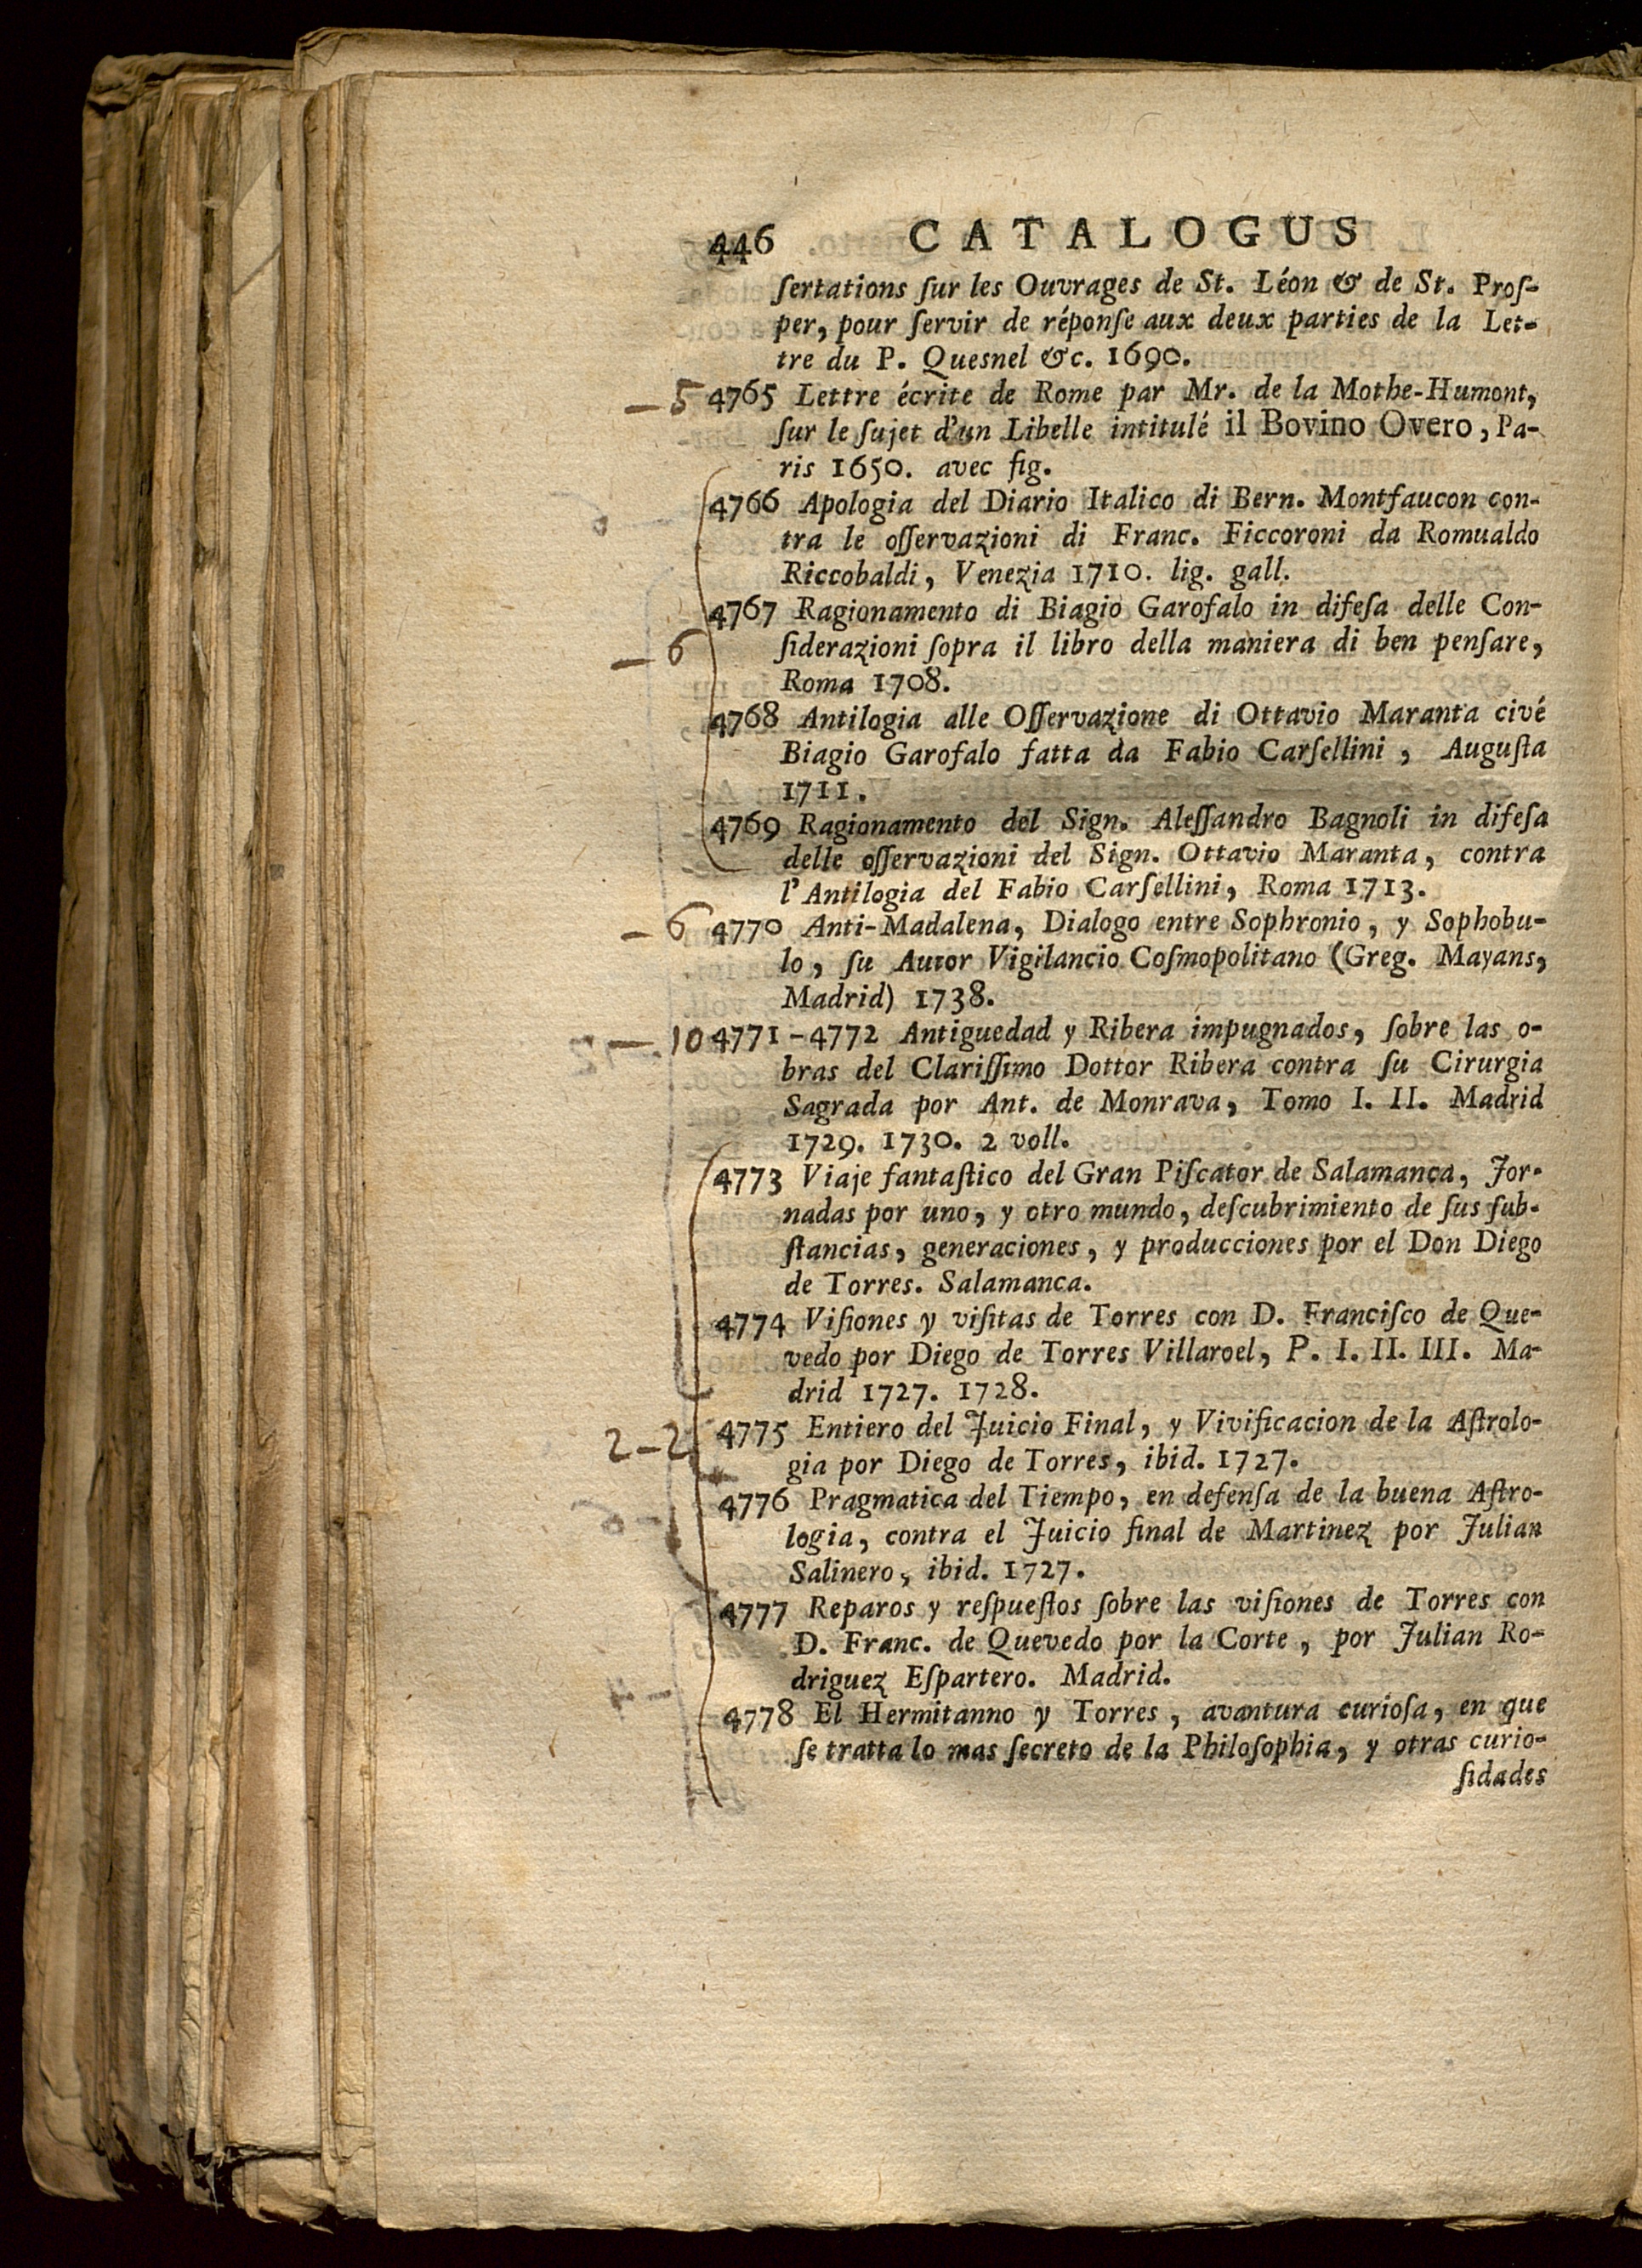 446 CATALOGUS
ſertations ſur les Ouvrages de St. Léon & de St. Proſ-
per, pour ſervir de réponſe aux deux parties de la Let-
tre du P. Quesnel &c. 1690.
— 5 4765 Lettre écrite de Rome par Mr. de la Mothe-Humont,
ſur le ſujet d'un Libelle intitulé il Bovino Overo, Pa-
ris 1650. avec fig.
4766 Apologia del Diario Italico di Bern. Montfaucon con-
tra le oſſervazioni di Franc. Ficcoroni da Romualdo
Riccobaldi, Venezia 1710. lig. gall.
4767 Ragionamento di Biagio Garofalo in difeſa delle Con-
— 6 ſiderazioni ſopra il libro della maniera di ben penſare,
Roma 1708.
4768 Antilogia alle Oſſervazione di Ottavio Maranta civé
Biagio Garofalo fatta da Fabio Carſellini, Auguſta
1711.
4769 Ragionamento del Sign. Aleſſandro Bagnoli in difeſa
delle oſſervazioni del Sign. Ottavio Maranta, contra
l'Antilogia del Fabio Carſellini, Roma 1713.
— 6 4770 Anti-Madalena, Dialogo entre Sophronio, y Sophobu-
lo, ſu Autor Vigilancio Coſmopolitano (Greg. Mayans,
Madrid) 1738.
— 10 4771-4772 Antiguedad y Ribera impugnados, ſobre las o-
bras del Clariſſimo Dottor Ribera contra ſu Cirurgia
Sagrada por Ant. de Monrava, Tomo I. II. Madrid
1729. 1730. 2 voll.
4773 Viaje fantaſtico del Gran Piſcator de Salamanca, Jor-
nadas por uno, y otro mundo, deſcubrimiento de ſus ſub-
ſtancias, generaciones, y producciones por el Don Diego
de Torres. Salamanca.
4774 Viſiones y viſitas de Torres con D. Franciſco de Que-
vedo por Diego de Torres Villaroel, P. I. II. III. Ma-
drid 1727. 1728.
2-2 4775 Entiero del Juicio Final, y Vivificacion de la Aſtrolo-
gia por Diego de Torres, ibid. 1727.
4776 Pragmatica del Tiempo, en defenſa de la buena Aſtro-
logia, contra el Juicio final de Martinez por Julian
Salinero, ibid. 1727.
4777 Reparos y reſpueſtos ſobre las viſiones de Torres con
D. Franc. de Quevedo por la Corte, por Julian Ro-
driguez Eſpartero. Madrid.
4778 El Hermitanno y Torres, avantura curioſa, en que
ſe tratta lo mas ſecreto de la Philoſophia, y otras curio-
ſidades